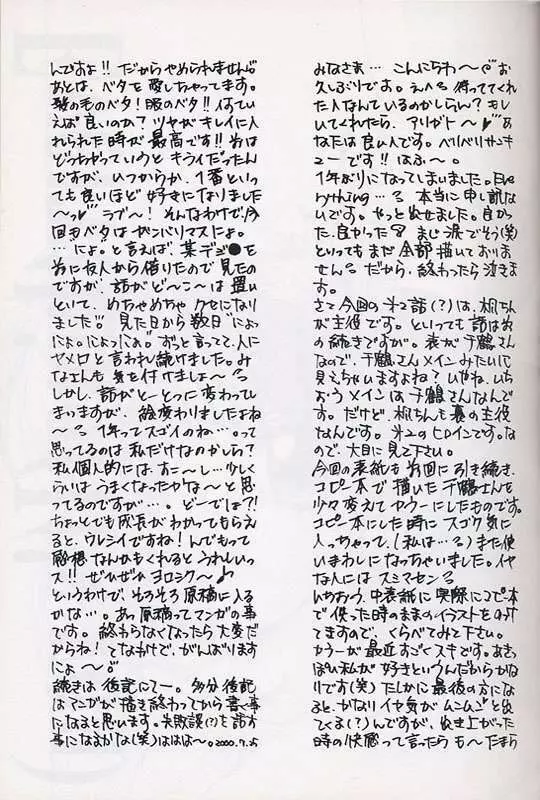 みなさま… こんにちわ〜 お
久しぶりです。え、待っててくれ
た人なんているのかしらん? もし
いてくれたら、アリガト〜♥ あ
なたは良い人です。ベリベリサンキ
ューです!! はふ〜。
1年ぶりになってしまいました。Eve
rything…。本当に申し訳な
いです。やっと出せました。良か
った、良かった。まじ涙でそう(笑)
といってもまだ全部描いておりま
せん。だから、終わったら泣きま
す。
さて今回の才2話(?)は、梓ちん
が主役です。といっても話は前
の続きですが。表が千鶴さん
なので、千鶴さんメインみたいに
見えちゃいますよね? いやね、いち
おうメインは千鶴さんなんで
す。だけど、梓ちんも裏の主役
なんです。才2のヒロインです。な
ので、大目に見て下さい。
今回の表紙も前回に引き続き、
コピー本で描いた千鶴さんを
少々変えてカラーにしたものです。
コピー本にした時にスゴク気に
入っちゃって、(私は…)また使
いまわしになっちゃいました。イヤ
な人にはスミマセン
いちおう、中表紙に実際にコピー本
で使った時のままのイラストをのけ
てますので、くらべてみて下さい。
カラーが最近すごくスキです。あきっ
ぽい私が好きというんだからかな
りです(笑) たしかに最後の方にな
ると、かなりイヤ気がムンムンと出
てくる(?)んですが、出き上がった
時の快感って言ったらも〜たまら
んですよ!! だからやめられません
あとは、ベタを愛しちゃってます。
髪の毛のベタ! 服のベタ!! 何てい
えば良いのか? ツヤがキレイに入
れられた時が最高です!! 前は
どっちかっていうとキライだったん
ですが、いつからか、1番といっ
ても良いほど好きになりました
〜♥ ラブ〜! そんなわけで、今
回もベタはガンバリマスにょ。
…"にょ"と言えば、某デジ●を
前に友人から借りたので見たの
ですが、話がど〜こ〜は置い
といて、めちゃめちゃクセになり
ました!! 見た日から数日"にょっ
にょ。にょっにょ。"ずっと言ってて、人に
ヤメロと言われ続けました。み
なさんも気を付けましょ〜
しかし、話がとーとつに変わってし
まいますが、絵変わりましたよね
〜。1年ってスゴイのね…。って
思ってるのは私だけなのかしら?
私個人的には、すこ〜し…少しく
らいはうまくなったかな〜と思
ってるのですが…。どーでしょ?!
ちょっとでも成長がわかってもらえ
ると、ウレシイですね! んでもって
感想なんかもくれるとうれしいっ
ス!! ぜひぜひ ヨロシク〜♪
というわけで、そろそろ原稿に入る
かな…。あっ原稿ってマンガの事
です。終わらなくなったら大変だ
からね! てなわけで、がんばります
にょ〜
続きは後記にてー。多分後記
はマンガが描き終わってから書く事
になると思います。失敗談(?)も話す
事になるかな(笑)ははは〜。2000.7.25